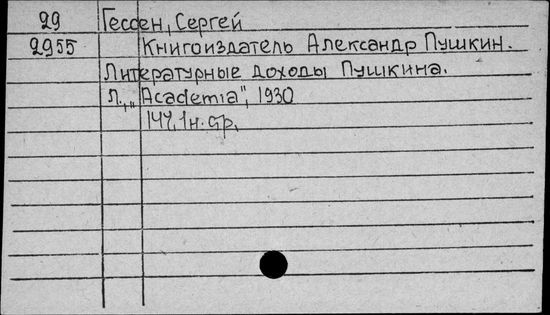 29 Гессен, Сергей
2955 Книгоиздатель Александр Пушкин.
Литературные доходы Пушкина.
Л., „Academia", 1930
144, 1 н. стр.